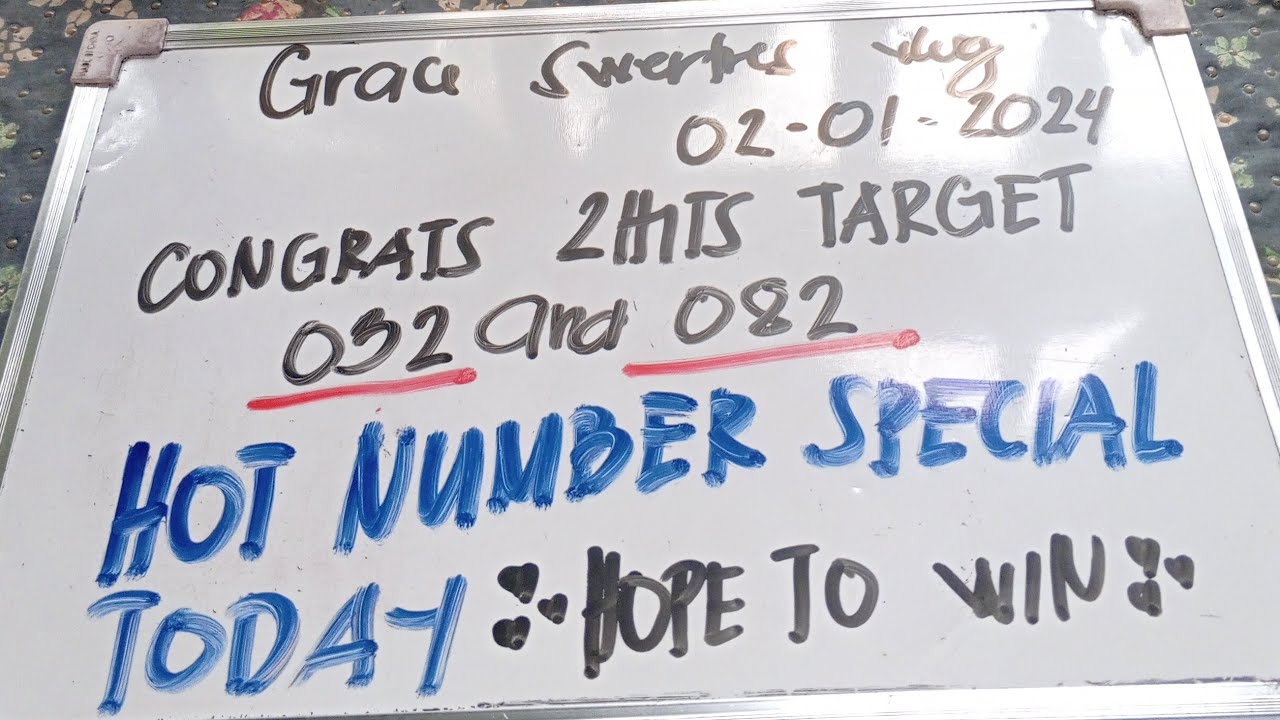 Grace Swertres vlog
02-01-2024
CONGRATS 2HITS TARGET
032 and 082
HOT NUMBER SPECIAL
TODAY HOPE TO WIN